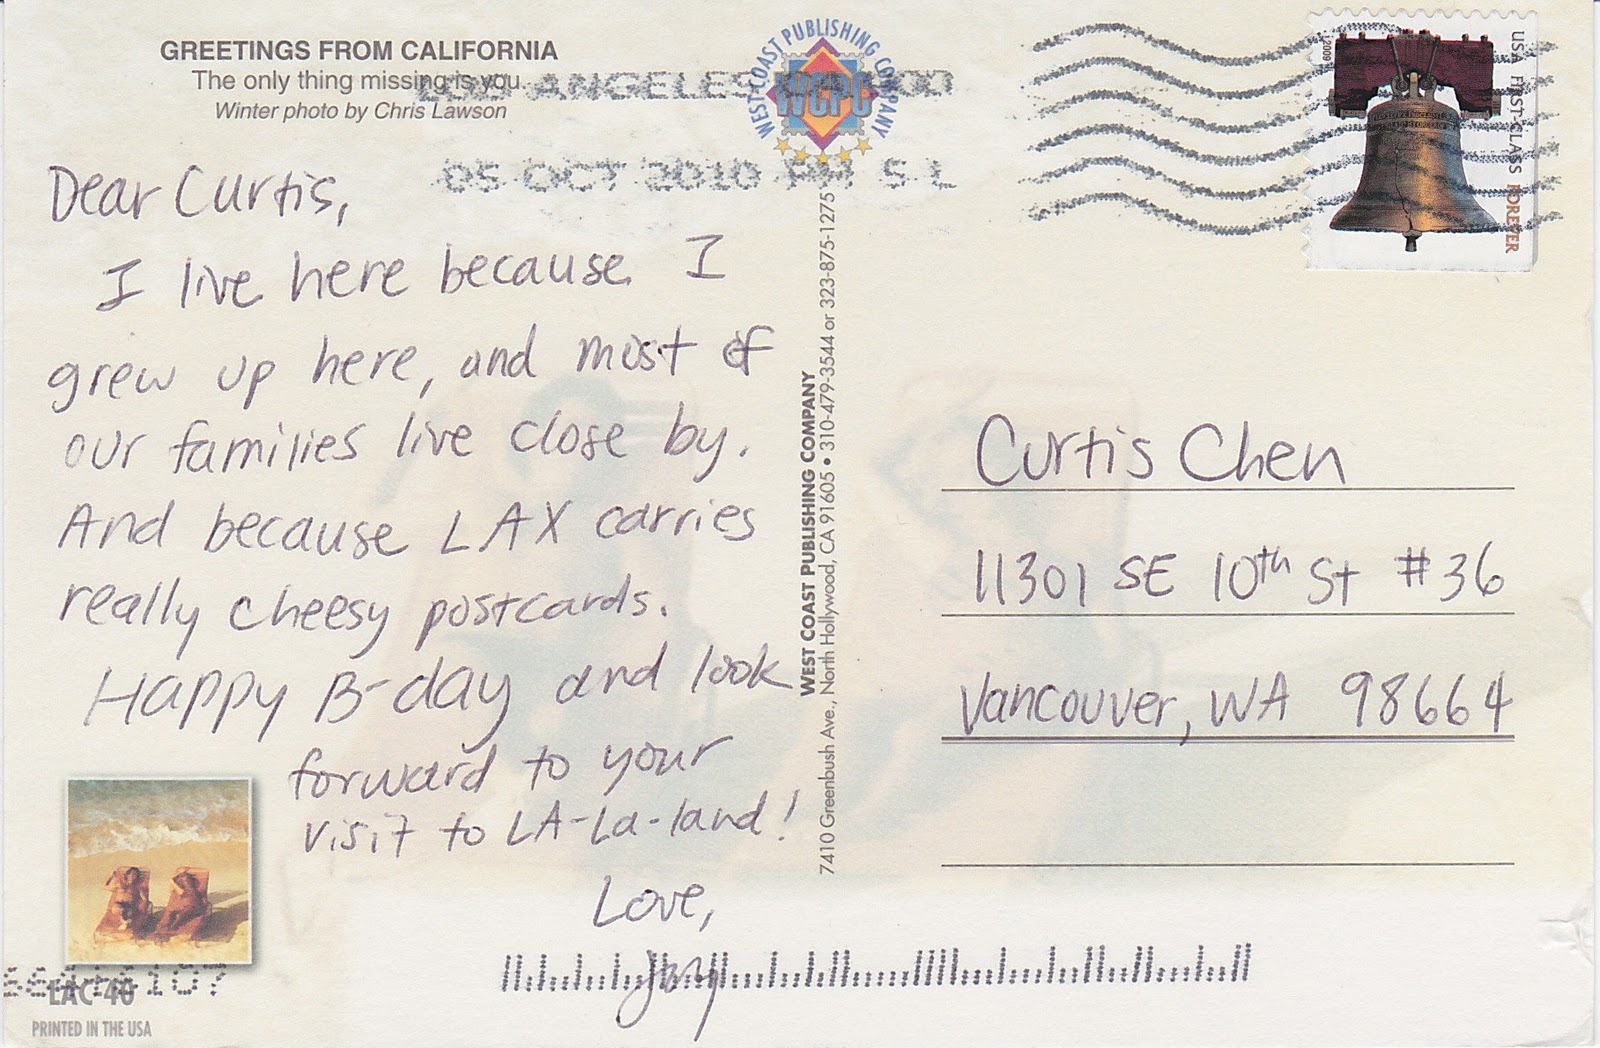 GREETINGS FROM CALIFORNIA
The only thing missing is you.
Winter photo by Chris Lawson
WEST COAST PUBLISHING COMPANY
WCPC
LOS ANGELES CA 900
05 OCT 2010 PM 5 L
USA FIRST-CLASS FOREVER
2009
Dear Curtis,
I live here because I
grew up here, and most of
our families live close by.
And because LAX carries
really cheesy postcards.
Happy B-day and look
forward to your
visit to LA-La-land!
Love,
WEST COAST PUBLISHING COMPANY
7410 Greenbush Ave., North Hollywood, CA 91605 • 310-479-3544 or 323-875-1275
Curtis Chen
11301 SE 10th St #36
Vancouver, WA 98664
LAC 40
PRINTED IN THE USA